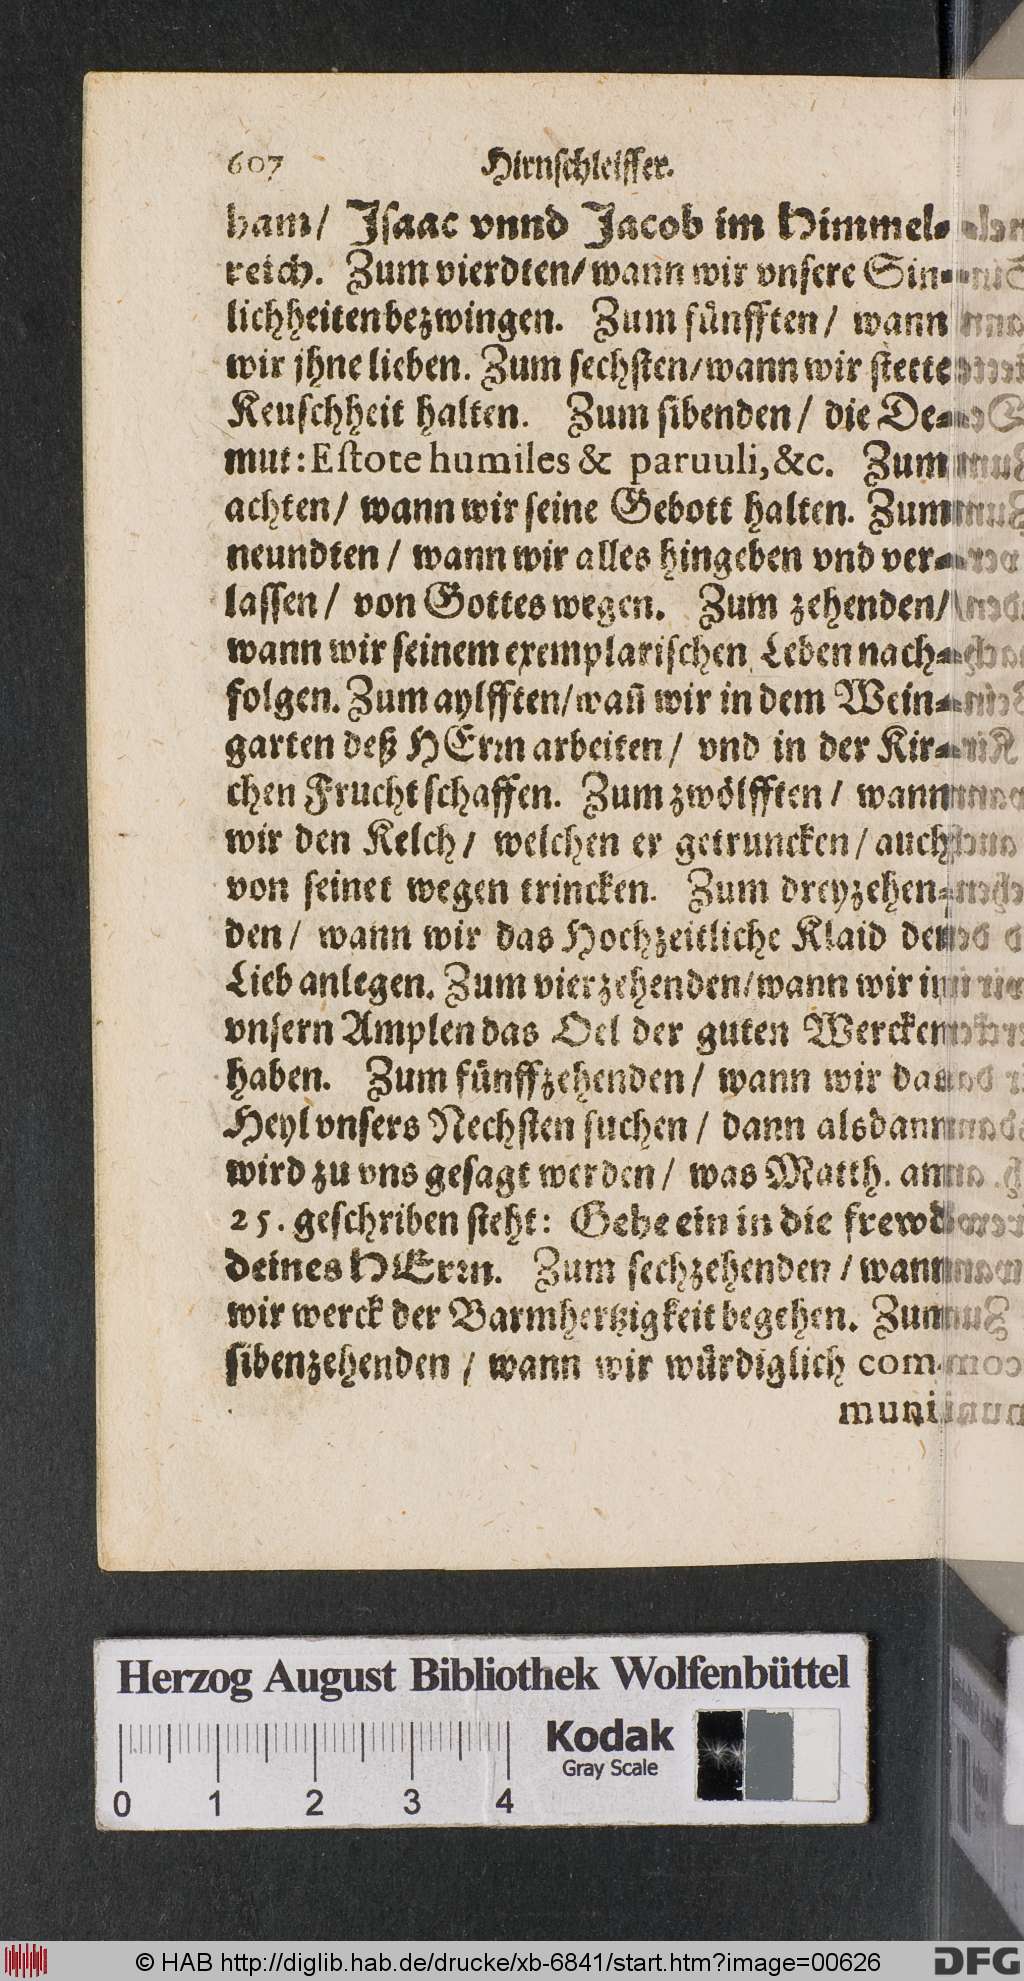 607 Hirnschleiffer.
ham/ Isaac vnnd Jacob im Himmel-
reich. Zum vierdten/ wann wir vnsere Sin-
lichheiten bezwingen. Zum fünfften/ wann
wir jhne lieben. Zum sechsten/ wann wir stette
Keuschheit halten. Zum sibenden/ die De-
mut: Estote humiles & paruuli, &c. Zum
achten/ wann wir seine Gebott halten. Zum
neundten/ wann wir alles hingeben vnd ver-
lassen/ von Gottes wegen. Zum zehenden/
wann wir seinem exemplarischen Leben nach-
folgen. Zum aylfften/ wañ wir in dem Wein-
garten deß HErrn arbeiten/ vnd in der Kir-
chen Frucht schaffen. Zum zwölfften/ wann
wir den Kelch/ welchen er getruncken/ auch
von seinet wegen trincken. Zum dreyzehen-
den/ wann wir das Hochzeitliche Klaid der
Lieb anlegen. Zum vierzehenden/ wann wir in
vnsern Amplen das Oel der guten Wercken
haben. Zum fünffzehenden/ wann wir das
Heyl vnsers Nechsten suchen/ dann alsdann
wird zu vns gesagt werden/ was Matth. am
25. geschriben steht: Gehe ein in die frewd
deines HErrn. Zum sechzehenden/ wann
wir werck der Barmhertzigkeit begehen. Zum
sibenzehenden/ wann wir würdiglich com-
muni
Herzog August Bibliothek Wolfenbüttel
Kodak
Gray Scale
0 1 2 3 4
© HAB http://diglib.hab.de/drucke/xb-6841/start.htm?image=00626
DFG